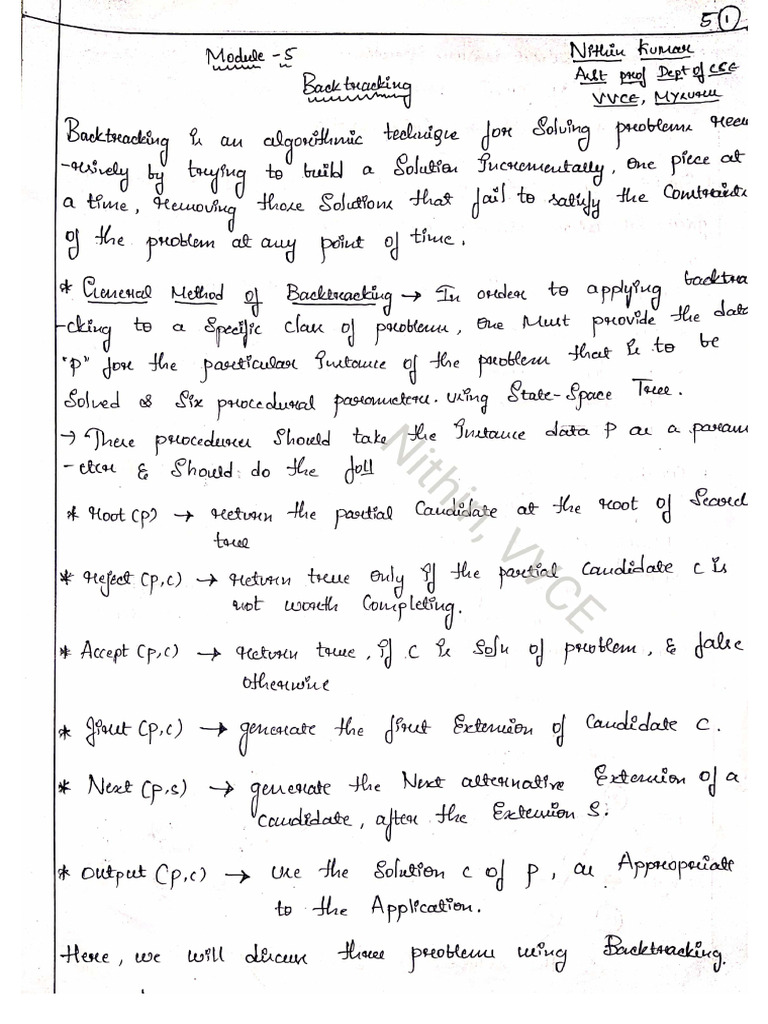 5 1
Module - 5
Nithin Kumar
Backtracking
Asst prof Dept of CSE
VVCE, Mysuru
Backtracking is an algorithmic technique for Solving problems recu
-rsively by trying to build a Solution Incrementally, one piece at
a time, removing those Solutions that fail to satisfy the Constraints
of the problem at any point of time.
* General Method of Backtracking → In order to applying backtra
-cking to a Specific class of problems, one Must provide the data
"P" for the particular Instance of the problem that is to be
Solved & Six procedural parameters. using State-Space Tree.
→ These procedures Should take the Instance data P as a param
-eter & Should do the foll
* Root (P) → return the partial Candidate at the root of Search
tree
* Reject (P,C) → return true only if the partial Candidate C is
not worth Completing.
* Accept (P,C) → return true, if C is Soln of problem, & false
otherwise
* First (P,C) → generate the first Extension of Candidate C.
* Next (P,S) → generate the Next alternative Extension of a
candidate, after the Extension S.
* Output (P,C) → use the Solution C of P, as Appropriate
to the Application.
Here, we will discuss three problems using Backtracking.
Nithin, VVCE